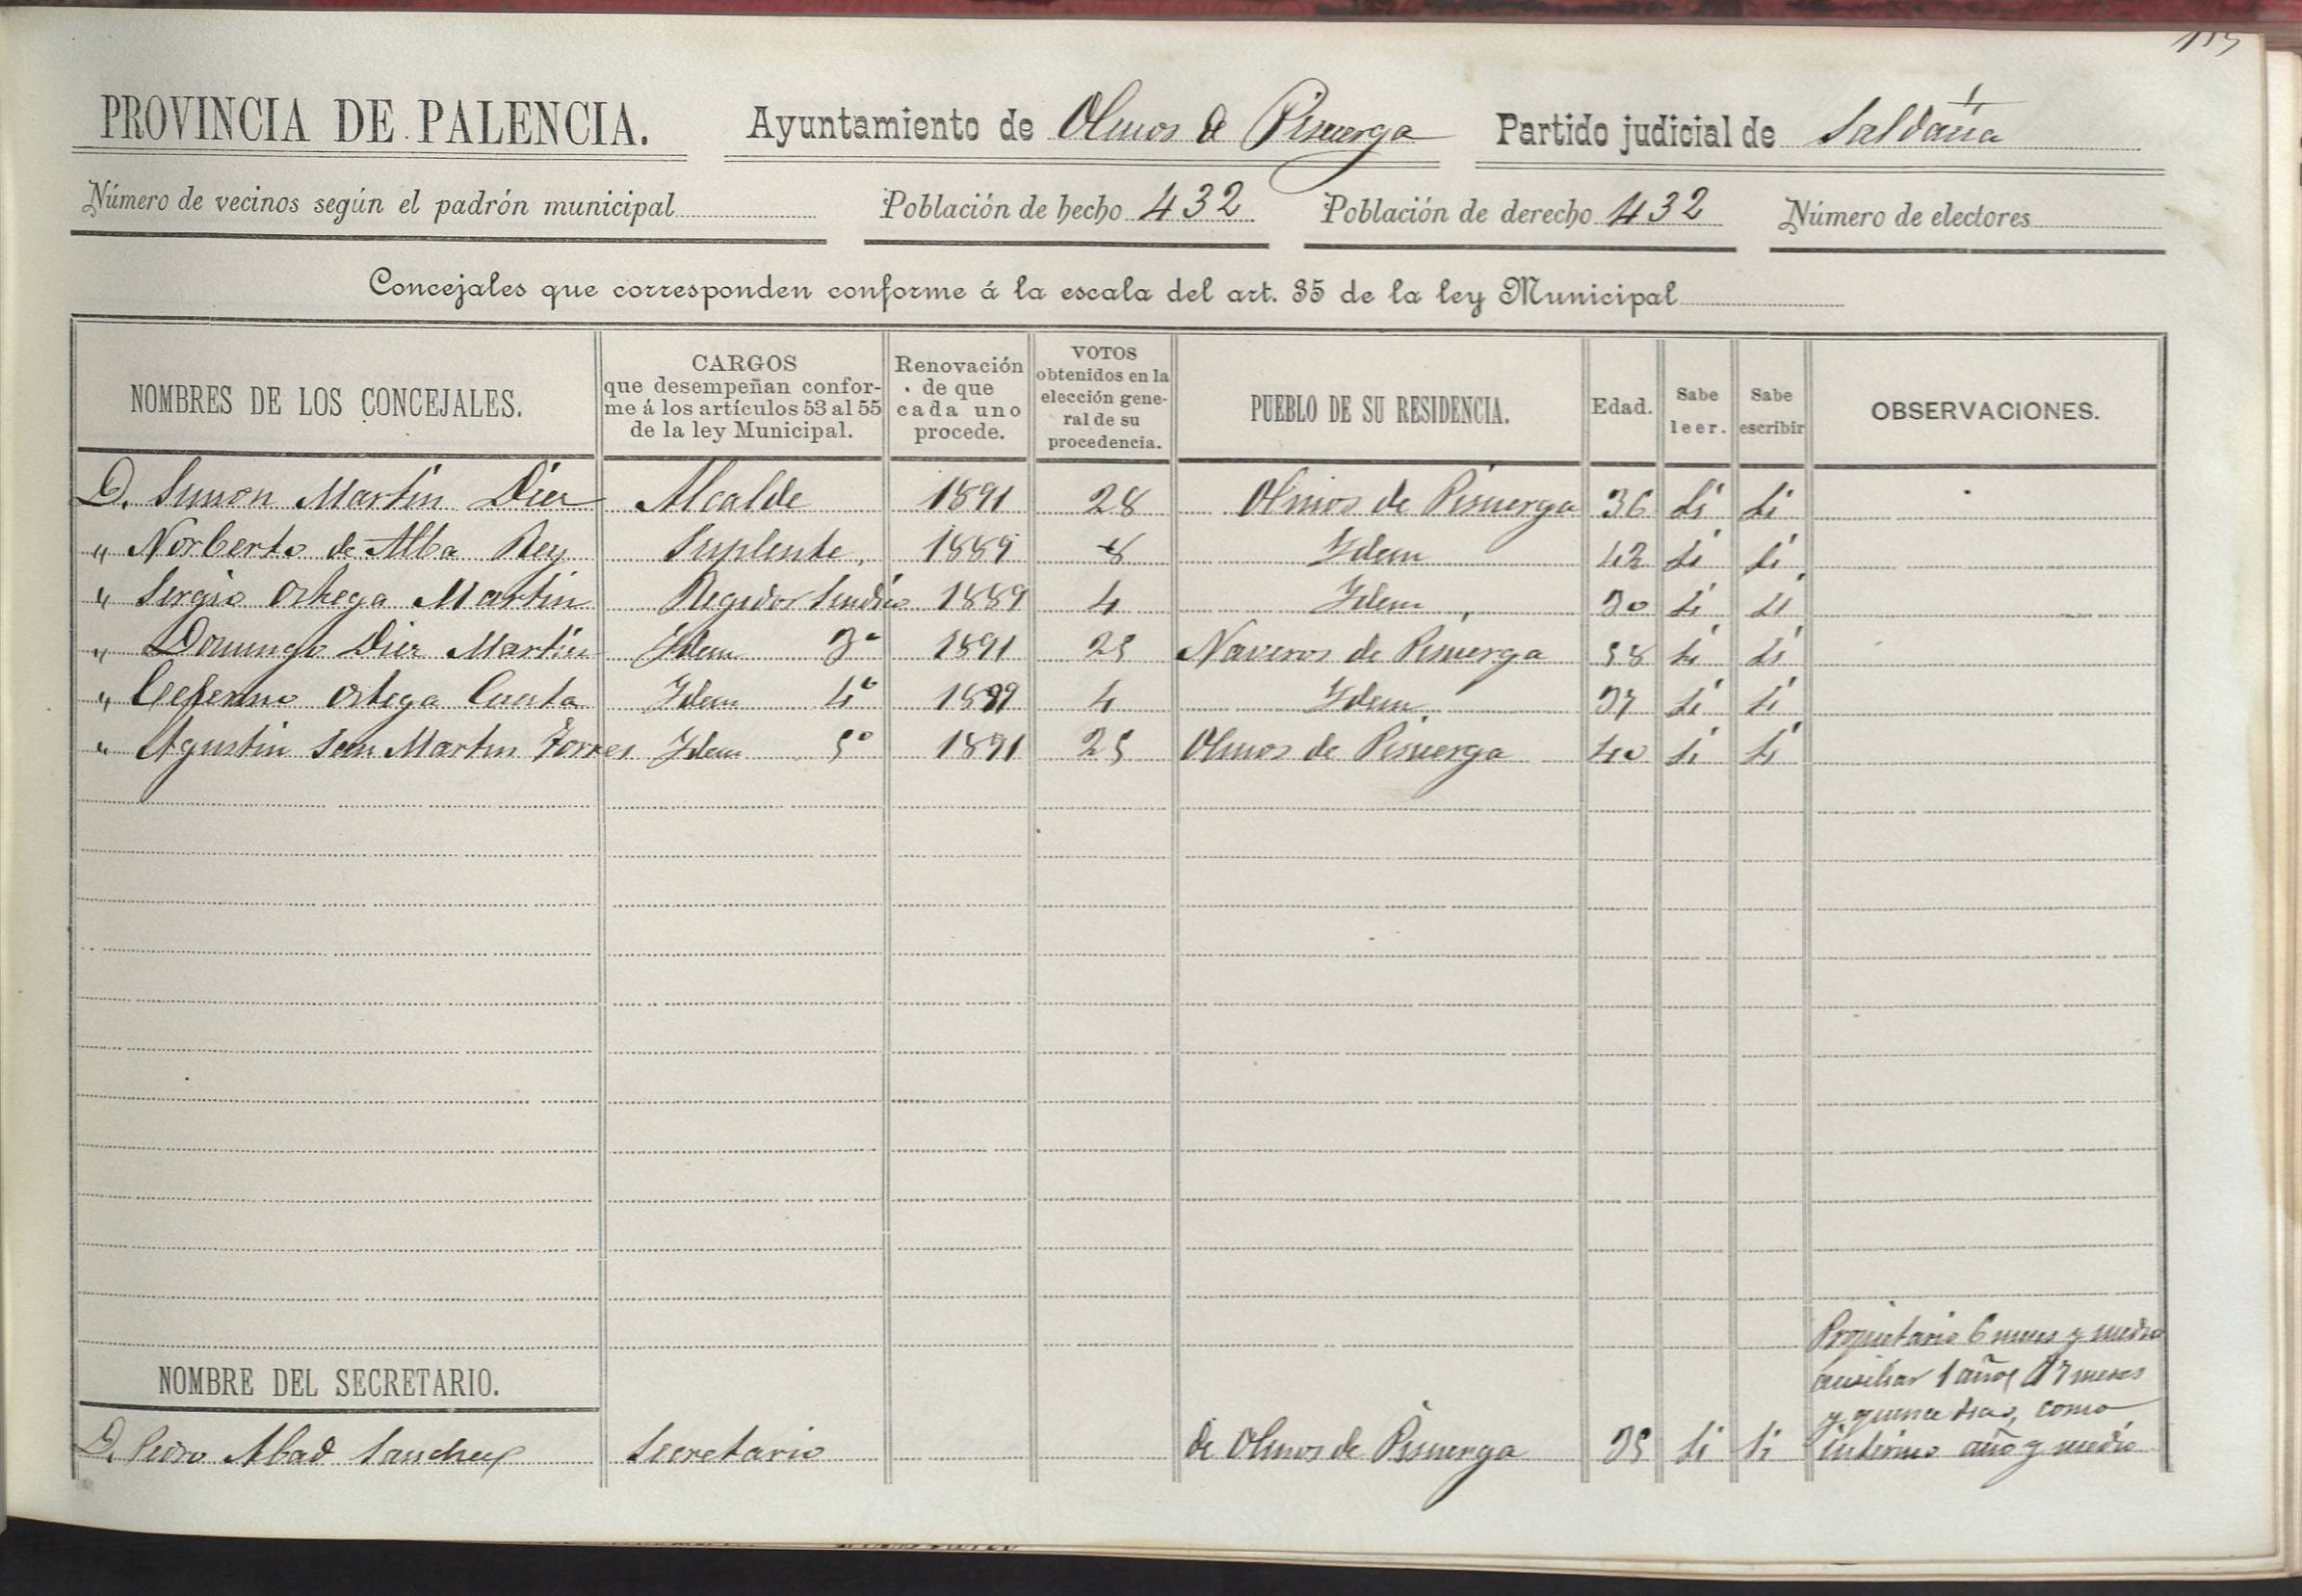 PROVINCIA DE PALENCIA. Ayuntamiento de Olmos de Pisuerga Partido judicial de Saldaña
Número de vecinos según el padrón municipal Población de hecho 432 Población de derecho 432 Número de electores
Concejales que corresponden conforme á la escala del art. 35 de la ley Municipal
NOMBRES DE LOS CONCEJALES. CARGOS que desempeñan confor- me á los artículos 53 al 55 de la ley Municipal. Renovación de que cada uno procede. VOTOS obtenidos en la elección gene- ral de su procedencia. PUEBLO DE SU RESIDENCIA. Edad. Sabe leer. Sabe escribir OBSERVACIONES.
D. Simon Martin Diez Alcalde 1891 28 Olmos de Pisuerga 36 Si Si
" Norberto de Alba Rey Suplente 1889 8 Idem 42 Si Si
" Sergio Ortega Martin Regidor Sindico 1889 4 Idem 30 Si Si
" Domingo Diez Martin Idem 3º 1891 25 Naveros de Pisuerga 58 Si Si
" Ceferino Ortega Cuesta Idem 4º 1889 4 Idem 37 Si Si
" Agustin San Martin Torres Idem 5º 1891 25 Olmos de Pisuerga 40 Si Si
Propietario 6 meses y medio
NOMBRE DEL SECRETARIO. auxiliar 1 años 7 meses
y quince dias, como
D. Pedro Abad Sanchez Secretario de Olmos de Pisuerga 35 Si Si interino año y medio